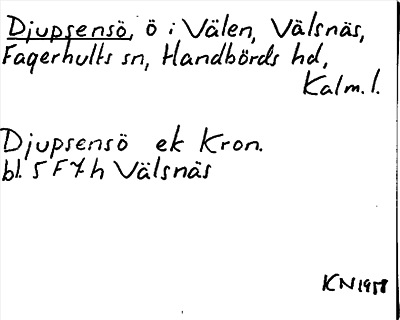 Djupsensö, ö i Välen, Välsnäs,
Fagerhults sn, Handbörds hd,
Kalm. l.
Djupsensö ek Kron.
bl. 5 F 7 h Välsnäs
KN 1958